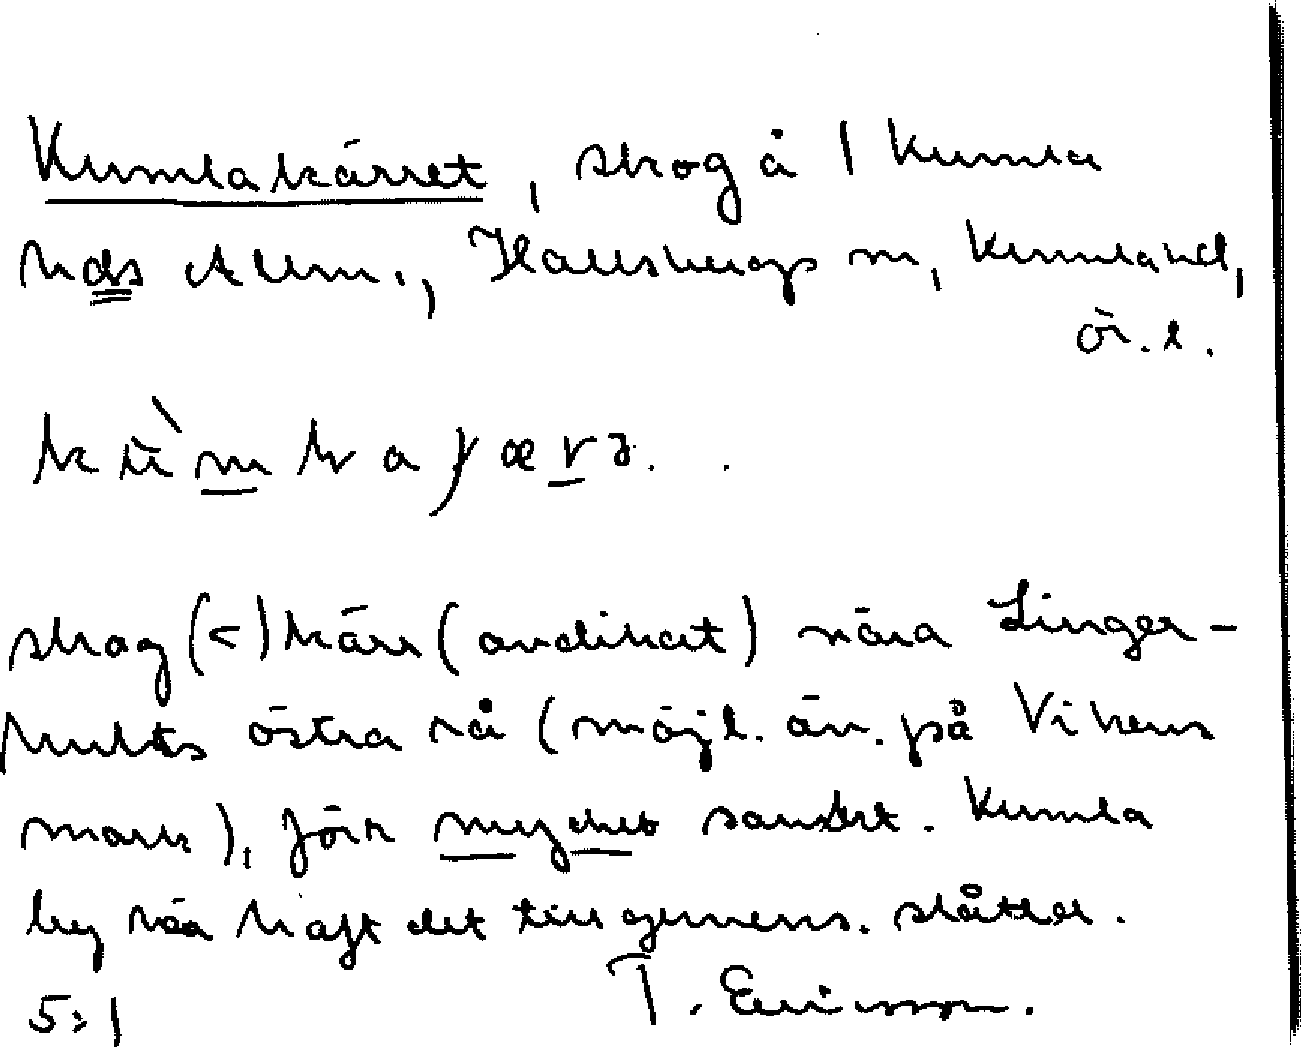 Kumlakärret, skog å 1 Kumla
hds Allm., Hallsbergs m, Kumla hd,
ör. l.
skog (<) kärr (avdikat) nära Linger-
hults östra rå (möjl. än. på Vikens
mark), förr mycket sankt. Kumla
by har haft det till gemens. slåtter.
5:1 T. Ericsson.